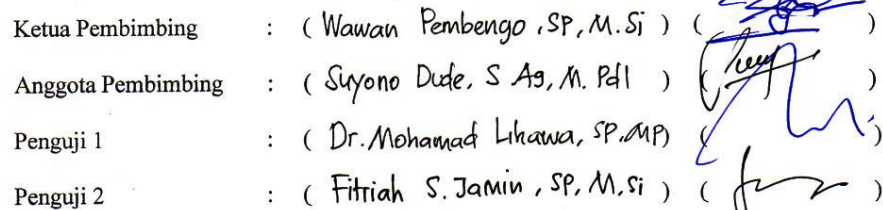 Ketua Pembimbing : ( Wawan Pembengo , SP, M. Si ) ( )
Anggota Pembimbing : ( Suyono Dude, S Ag, M. PdI ) ( )
Penguji 1 : ( Dr. Mohamad Lihawa, SP, MP) ( )
Penguji 2 : ( Fitriah S. Jamin , SP, M. Si ) ( )